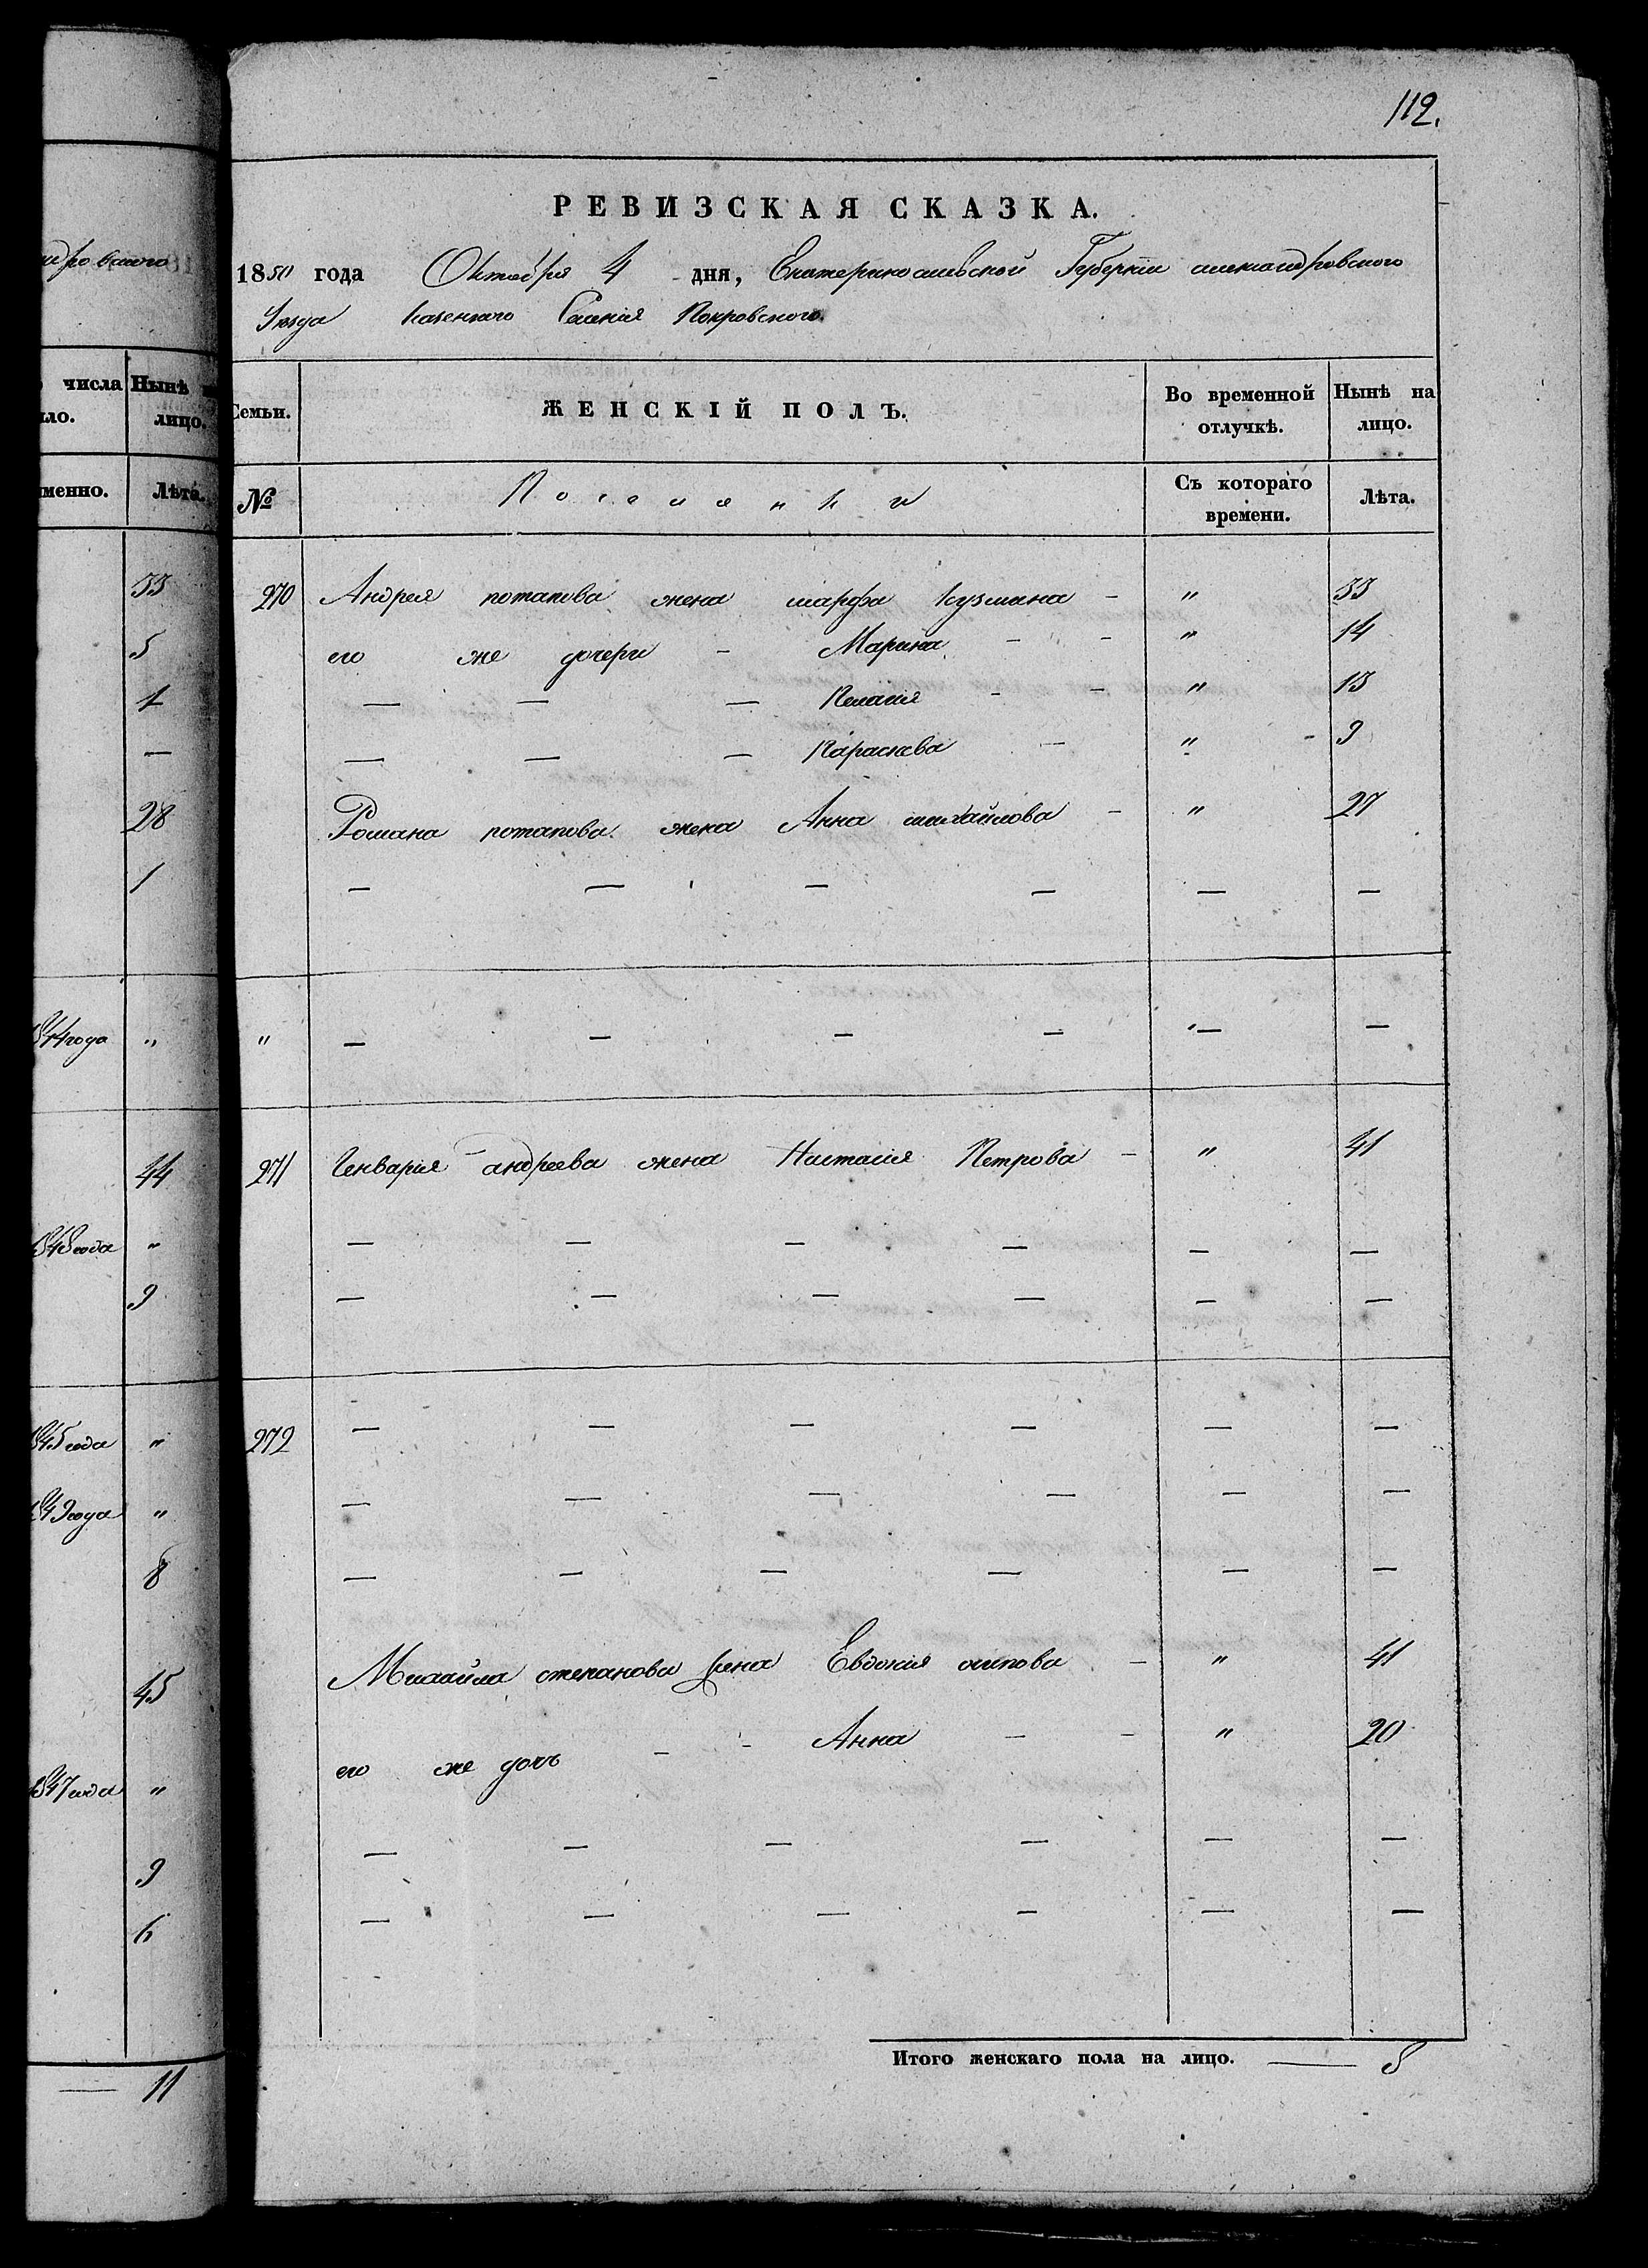 112.
РЕВИЗСКАЯ СКАЗКА.
1850 года Октября 4 дня, Екатеринославской Губернии александровского
Уезда казенного Селения Покровского.
Семьи. ЖЕНСКІЙ ПОЛЪ. Во временной отлучкѣ. Нынѣ на лицо.
№ Поселянки Съ котораго времени. Лѣта.
270 Андрея потапова жена марфа кузмина - " 33
его же дочери - Марина - - " 14
— — — Пелагия - - " 13
— — — Параскева - " - 9
Романа потапова жена Анна михайлова - " 27
— — — — — —
" — — — — "— —
271 Генваря андреева жена Настасия Петрова - " 41
— — — — — —
— — — — — —
272 — — — — — —
— — — — — —
— — — — — —
Михайла степанова жена Евдокия осипова - " 41
его же дочь - - Анна - - " 20
— — — — — —
— — — — — —
Итого женскаго пола на лицо. — 8
числа
ло.
Нынѣ
лицо.
менно.
Лѣта.
33
5
1
—
28
1
1844 года "
44
1848 года "
9
1845 года "
1849 года "
8
45
1847 года "
9
6
— 11